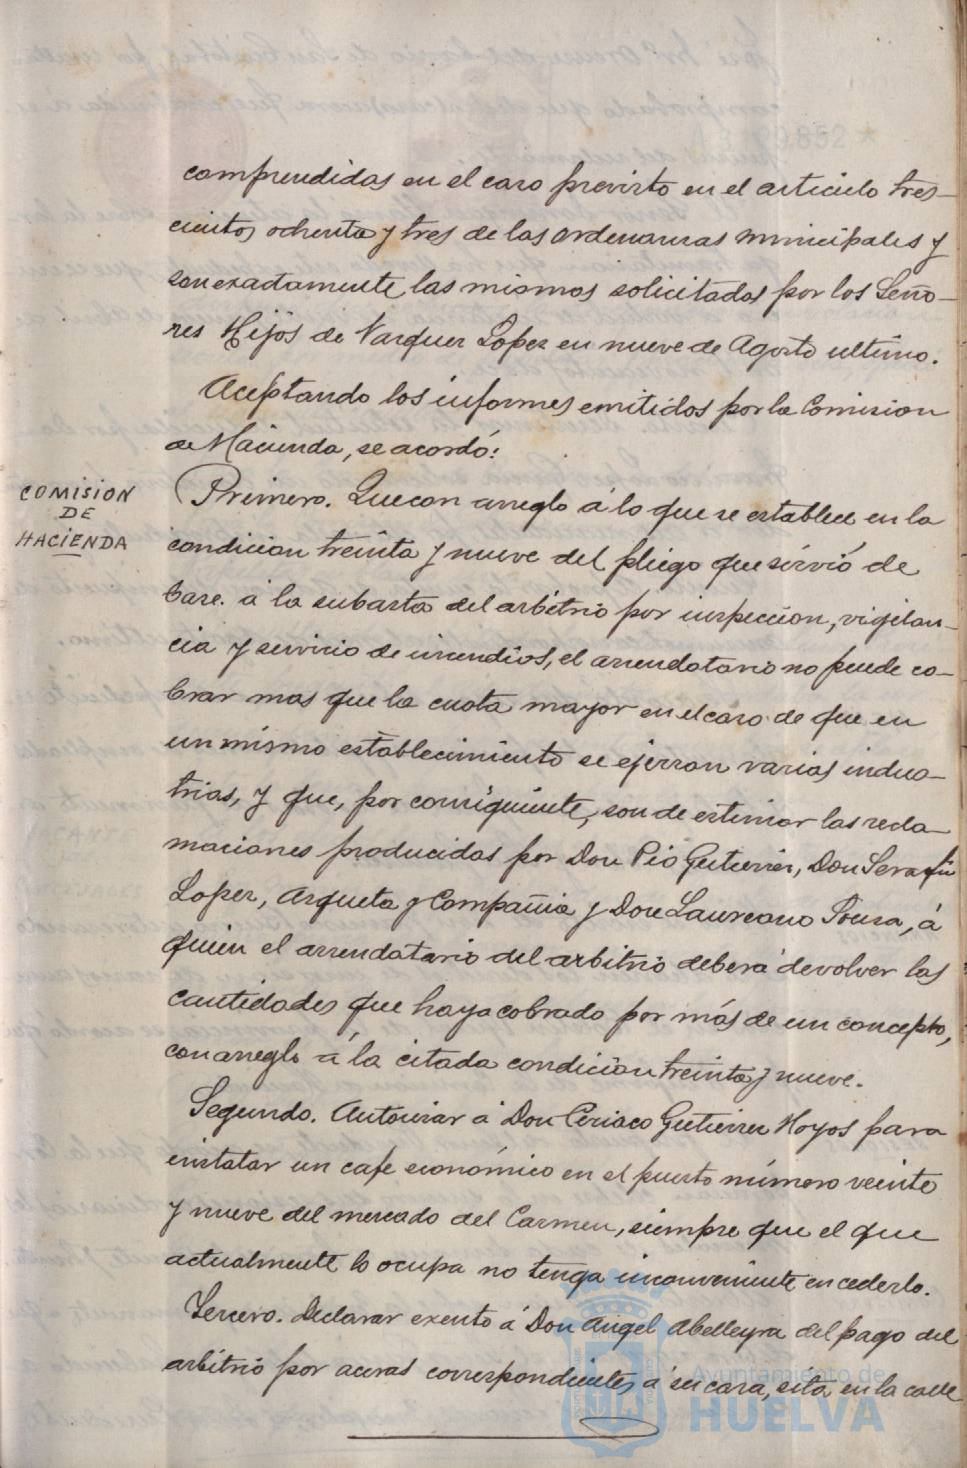 comprendidas en el caso previsto en el articulo tres-
cientos ochenta y tres de las ordenanzas municipales y
son exadtamente las mismas solicitadas por los Seño-
res Hijos de Vazquez Lopez en nueve de Agosto ultimo.
Aceptando los informes emitidos por la Comision
de Hacienda, se acordó:
COMISION
DE
HACIENDA
Primero. Que con arreglo á lo que se establece en la
condicion treinta y nueve del pliego que sirvió de
base. a la subasta del arbitrio por inspeccion, vigilan-
cia y servicio de incendios, el arrendatario no puede co-
brar mas que la cuota mayor en el caso de que en
un mismo establecimiento se ejerzan varias indus-
trias, y que, por consiguiente, son de estimar las recla-
maciones producidas por Don Pio Gutierrez, Don Serafin
Lopez, Azqueta y Compañia y Don Laureano Souza, á
quien el arrendatario del arbitrio deberá devolver las
cantidades que haya cobrado por más de un concepto,
con arreglo á la citada condicion treinta y nueve.
Segundo. Autorizar á Don Ciriaco Gutierrez Hoyos para
instalar un cafe económico en el puesto número veinte
y nueve del mercado del Carmen, siempre que el que
actualmente lo ocupa no tenga inconveniente en cederlo.
Tercero. Declarar exento á Don Angel Abelleyra del pago del
arbitrio por aceras correspondientes á su casa, sita en la calle
Ayuntamiento de
HUELVA